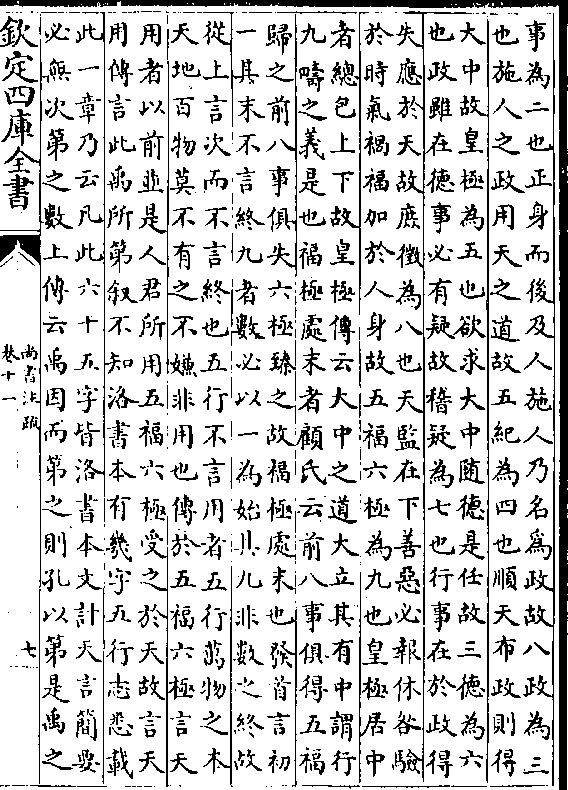 事為二也正身而後及人施人乃名為政故八政為三
也施人之政用天之道故五紀為四也順天布政則得
大中故皇極為五也欲求大中随德是任故三德為六
也政雖在德事必有疑故稽疑為七也行事在於政得
失應於天故庶徵為八也天監在下善惡必報休咎驗
於時氣禍福加於人身故五福六極為九也皇極居中
者總包上下故皇極傳云大中之道大立其有中謂行
九疇之義是也福極處末者顧氏云前八事俱得五福
歸之前八事俱失六極臻之故禍極處末也發首言初
一其末不言終九者數必以一為始其九非數之終故
從上言次而不言終也五行不言用者五行萬物之本
天地百物莫不有之不嫌非用也傳於五福六極言天
用者以前並是人君所用五福六極受之於天故言天
用傳言此禹所第叙不知洛書本有幾字五行志悉載
此一章乃云凡此六十五字皆洛書本文計天言簡要
必無次第之數上傳云禹因而第之則孔以第是禹之
欽定四庫全書
尚書注疏
卷十一
七